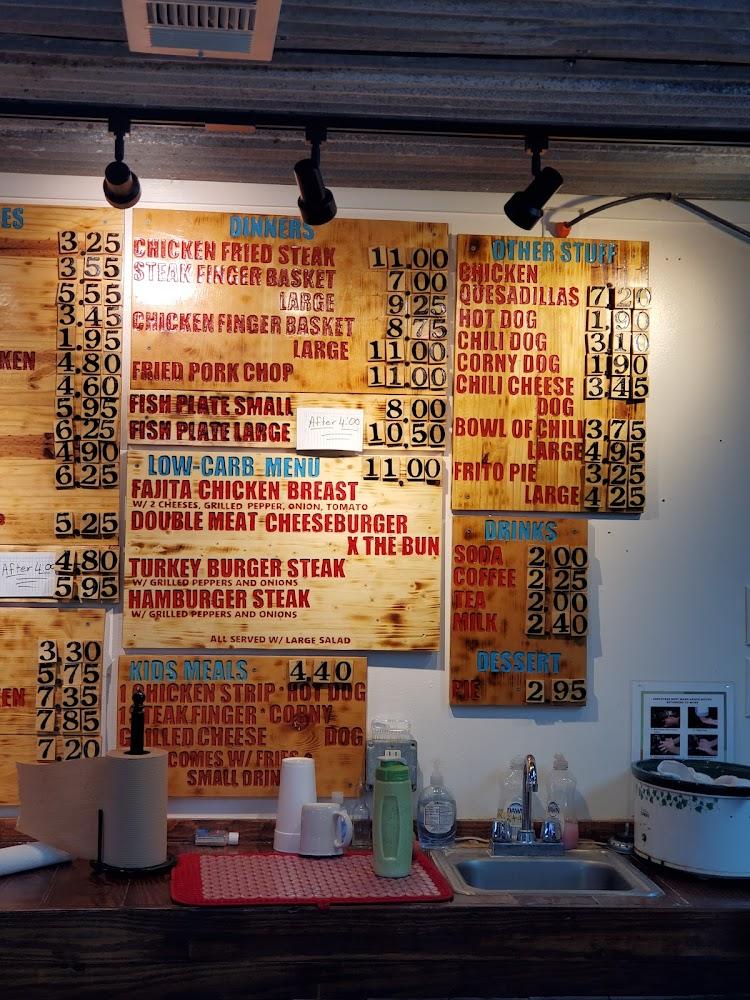 ES
3.25
3.55
5.55
3.45
1.95
KEN 4.80
4.60
5.95
6.25
4.90
6.25
5.25
After 4:00 4.80
5.95
3.30
5.75
EN 7.35
7.85
7.20
DINNERS
CHICKEN FRIED STEAK 11.00
STEAK FINGER BASKET 7.00
LARGE 9.25
CHICKEN FINGER BASKET 8.75
LARGE 11.00
FRIED PORK CHOP 11.00
FISH PLATE SMALL 8.00
FISH PLATE LARGE After 4:00 10.50
LOW-CARB MENU 11.00
FAJITA CHICKEN BREAST
W/ 2 CHEESES, GRILLED PEPPER, ONION, TOMATO
DOUBLE MEAT CHEESEBURGER
X THE BUN
TURKEY BURGER STEAK
W/ GRILLED PEPPERS AND ONIONS
HAMBURGER STEAK
W/ GRILLED PEPPERS AND ONIONS
ALL SERVED W/ LARGE SALAD
KIDS MEALS 4.40
1 CHICKEN STRIP · HOT DOG
1 STEAK FINGER · CORNY
GRILLED CHEESE DOG
COMES W/ FRIES
SMALL DRIN
OTHER STUFF
CHICKEN
QUESADILLAS 7.20
HOT DOG 1.90
CHILI DOG 3.10
CORNY DOG 1.90
CHILI CHEESE 3.45
DOG
BOWL OF CHILI 3.75
LARGE 4.95
FRITO PIE 3.25
LARGE 4.25
DRINKS
SODA 2.00
COFFEE 2.25
TEA 2.00
MILK 2.40
DESSERT
PIE 2.95
DAWN